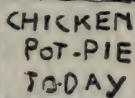 CHICKEN
POT-PIE
TODAY